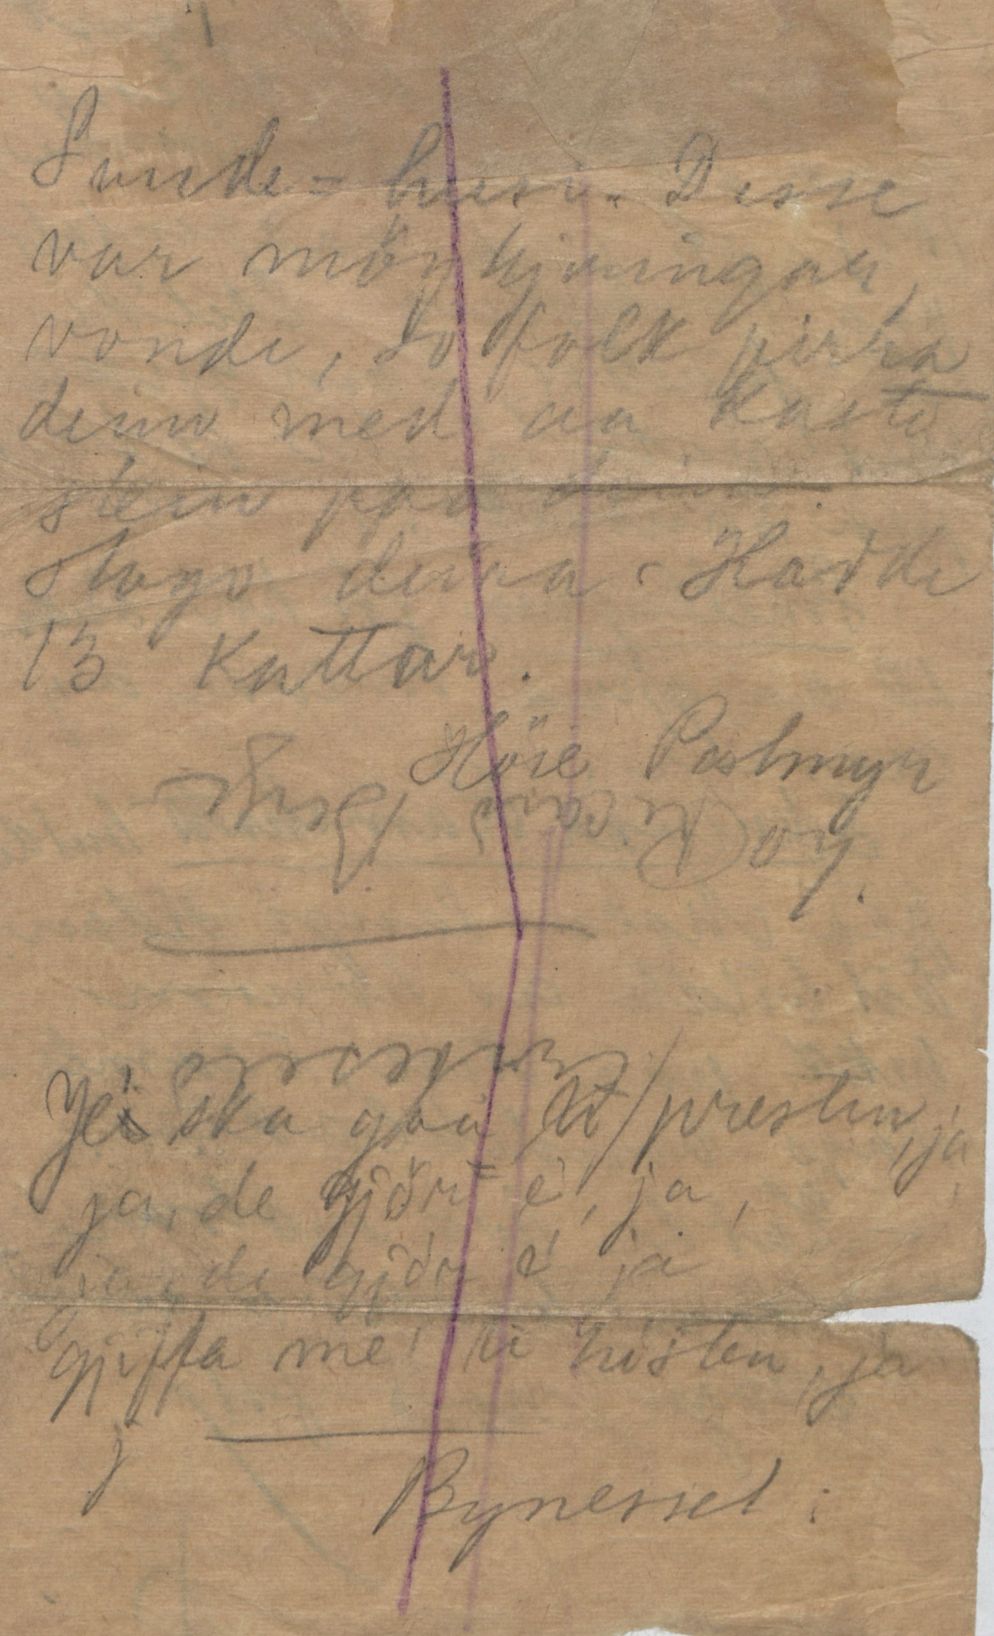 Sunde-husi. Desse
var möykjæringar,
vonde, so folk pirra
deim med aa kasta
stein paa deim.
slogo deira. Hadde
13 Kattar.
Höre Postmyr
Rikard Berge
Jei ska gaa te presten, ja
ja, de gjör e, ja,
ja, de gjör e ja
gjifta me ti hösten, ja
Bynesset: